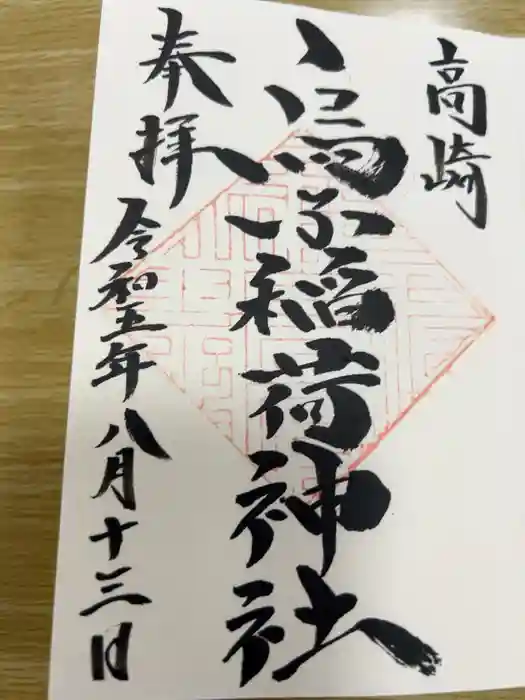 高崎
於烏子稲荷神社
奉拝
令和五年八月十三日